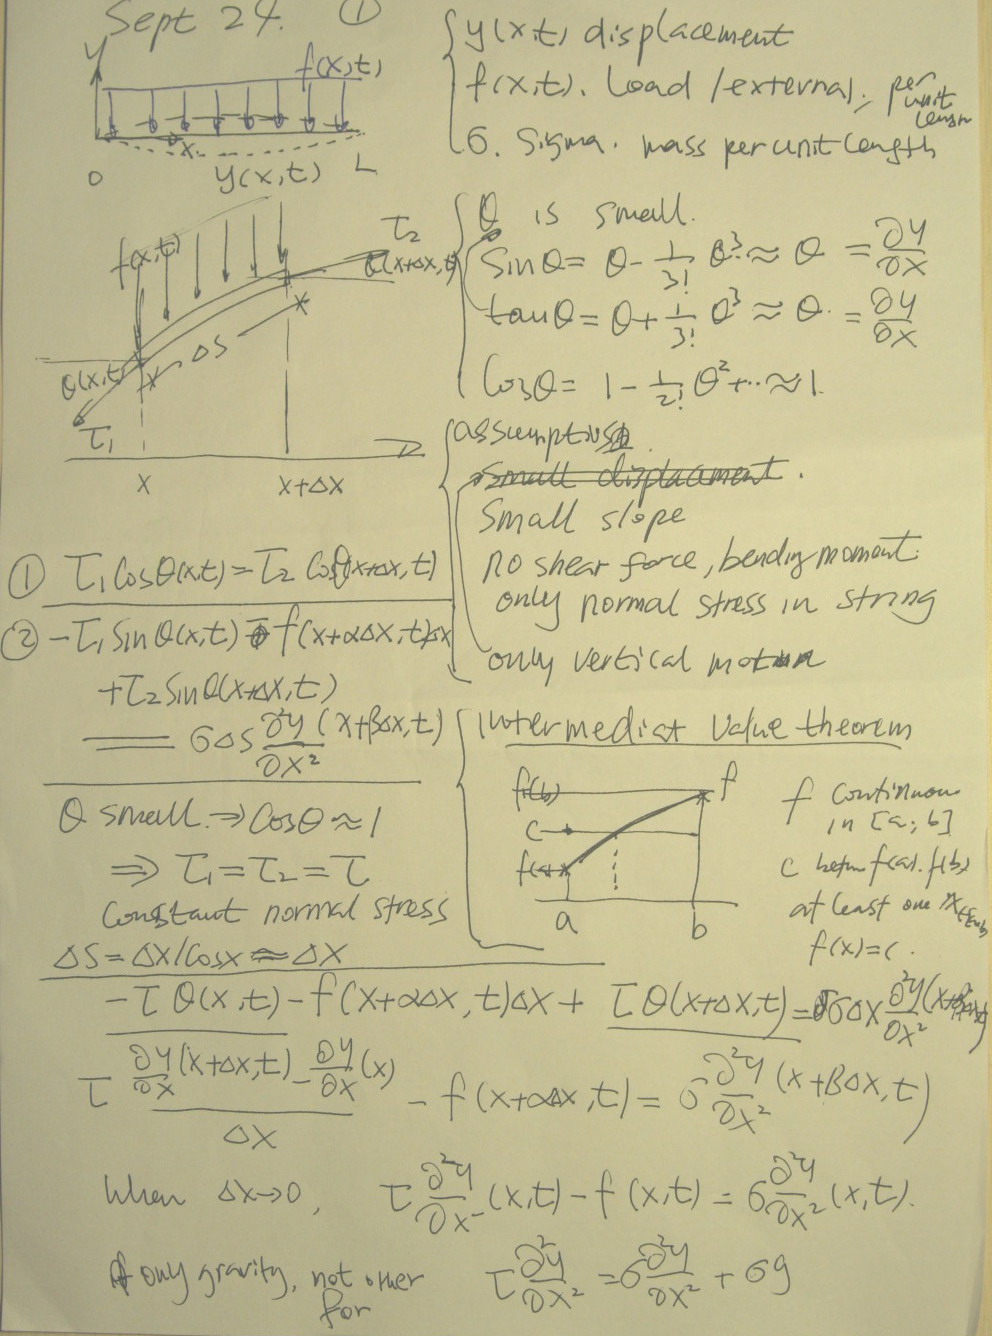 Sept 24. ①
y
f(x,t)
x.
0
y(x,t) L
y(x,t) displacement
f(x,t). Load /external, per unit length
σ. Sigma. mass per unit length
f(x,t)
τ₂
θ(x+Δx,t)
ΔS
θ(x,t)
τ₁
x
x+Δx
θ is small.
Sinθ = θ - 1/3! θ³ ≈ θ = ∂y/∂x
tanθ = θ + 1/3! θ³ ≈ θ. = ∂y/∂x
Cosθ = 1 - 1/2! θ² + ·· ≈ 1.
assumptions
small displacement.
Small slope
no shear force, bending moment.
only normal stress in string
only vertical motion
① τ₁ Cosθ(x,t) = τ₂ Cosθ(x+Δx,t)
② -τ₁ Sinθ(x,t) - f(x+αΔx,t)Δx
+τ₂ Sinθ(x+Δx,t)
= σΔS ∂²y/∂x² (x+βΔx,t)
θ small. ⇒ Cosθ ≈ 1
⇒ τ₁ = τ₂ = τ
Constant normal stress
ΔS = Δx/Cosx ≈ Δx
Intermediat Value theorem
f(b)
f
C
f(a)
a
b
f continuous
in [a, b]
C betwn f(a). f(b)
at least one x
f(x)=C.
-τ θ(x,t) - f(x+αΔx,t)Δx + τ θ(x+Δx,t) = σΔx ∂²y/∂x² (x+βΔx,t)
τ (∂y/∂x (x+Δx,t) - ∂y/∂x (x))/Δx - f(x+αΔx,t) = σ ∂²y/∂x² (x+βΔx,t)
When Δx→0, τ ∂²y/∂x² (x,t) - f(x,t) = σ ∂²y/∂x² (x,t).
If only gravity, not other for τ ∂²y/∂x² = σ ∂²y/∂x² + σg